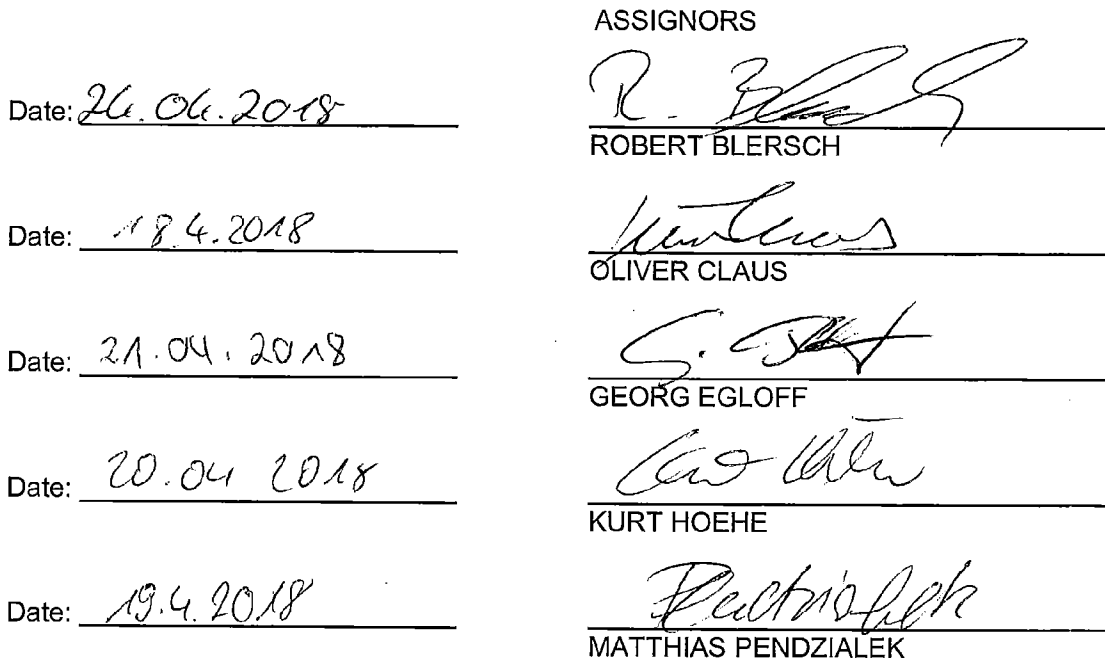 ASSIGNORS
Date: 24.04.2018
ROBERT BLERSCH
Date: 18.4.2018
OLIVER CLAUS
Date: 21.04.2018
GEORG EGLOFF
Date: 20.04 2018
KURT HOEHE
Date: 19.4.2018
Pendzialek
MATTHIAS PENDZIALEK